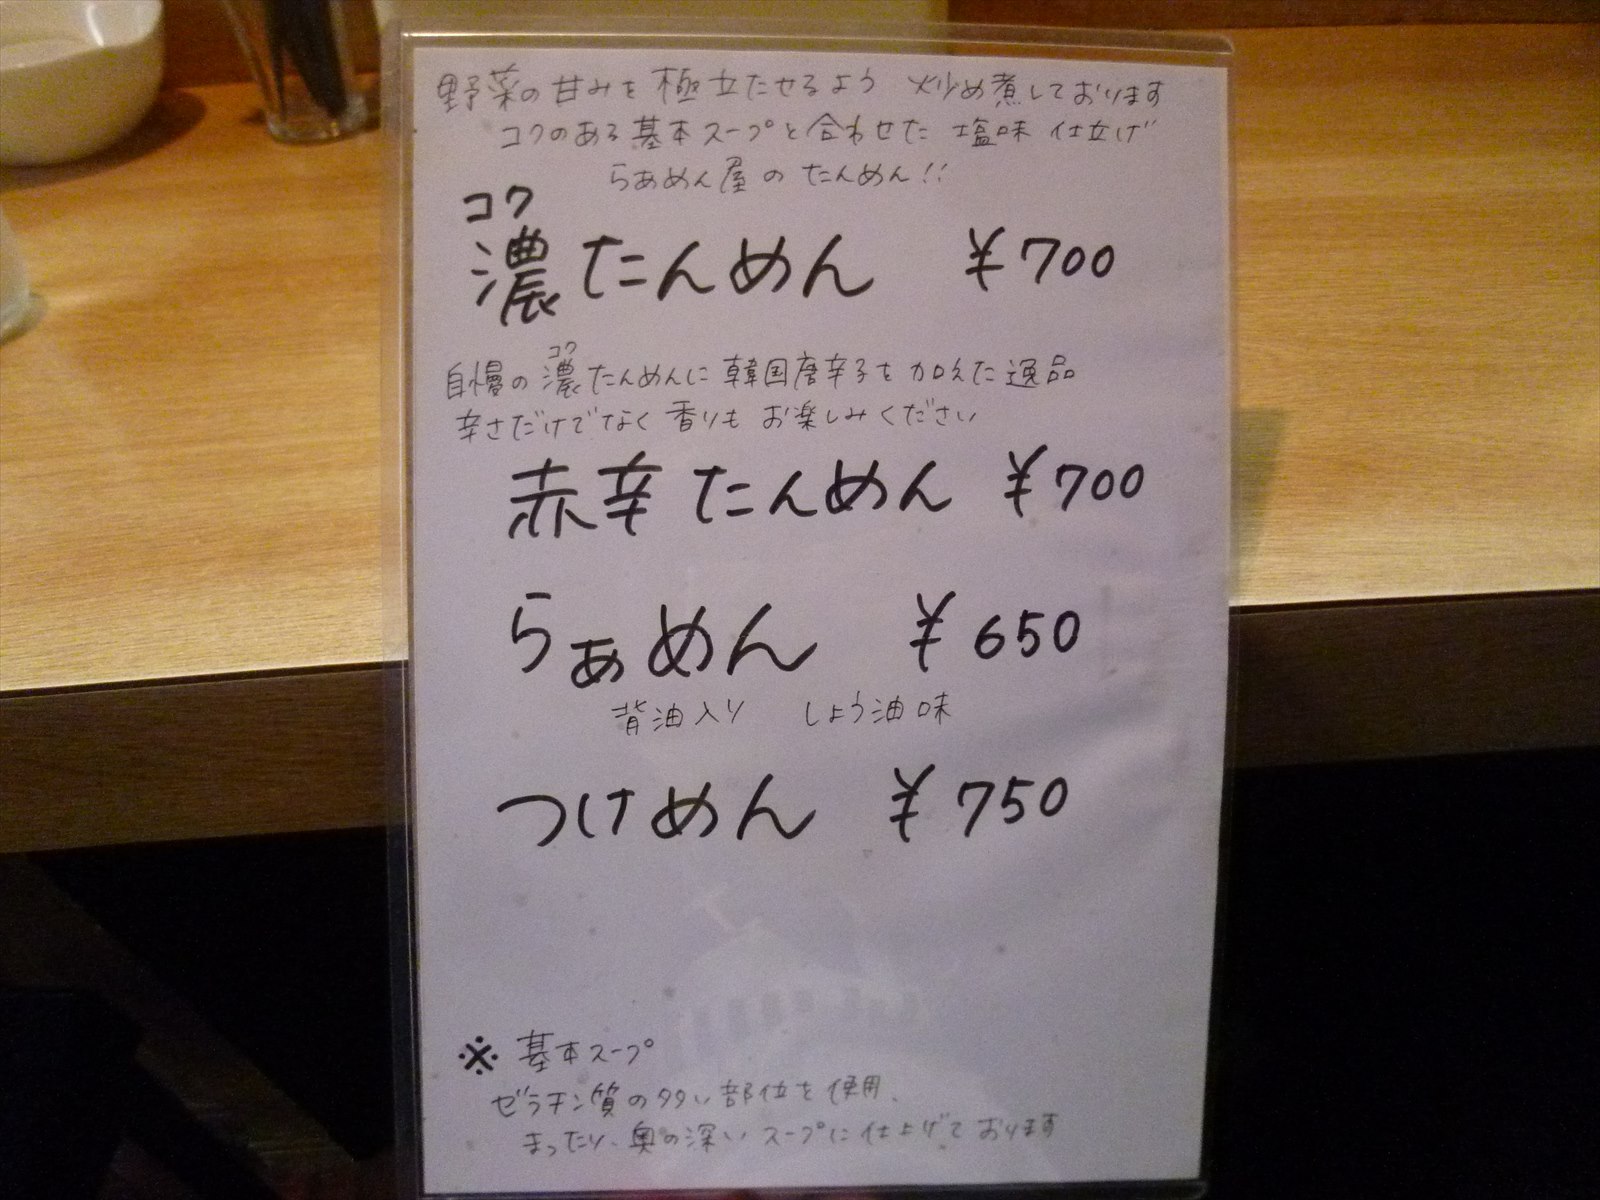 野菜の甘みを極立たせるよう 炒め煮しております
コクのある基本スープと合わせた 塩味 仕立げ
らあめん屋の たんめん!!
コク
濃たんめん ¥700
コク
自慢の濃たんめんに韓国唐辛子を加えた逸品
辛さだけでなく香りもお楽しみください
赤辛たんめん ¥700
らぁめん ¥650
背油入り しょう油味
つけめん ¥750
※ 基本スープ
ゼラチン質の多い部位を使用、
まったり、奥の深いスープに仕上げております